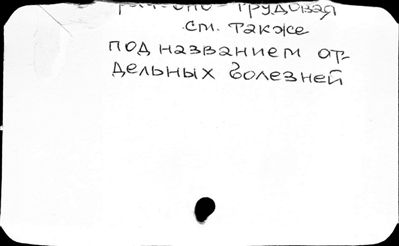 трудовая
см. также
под названием от-
дельных болезней